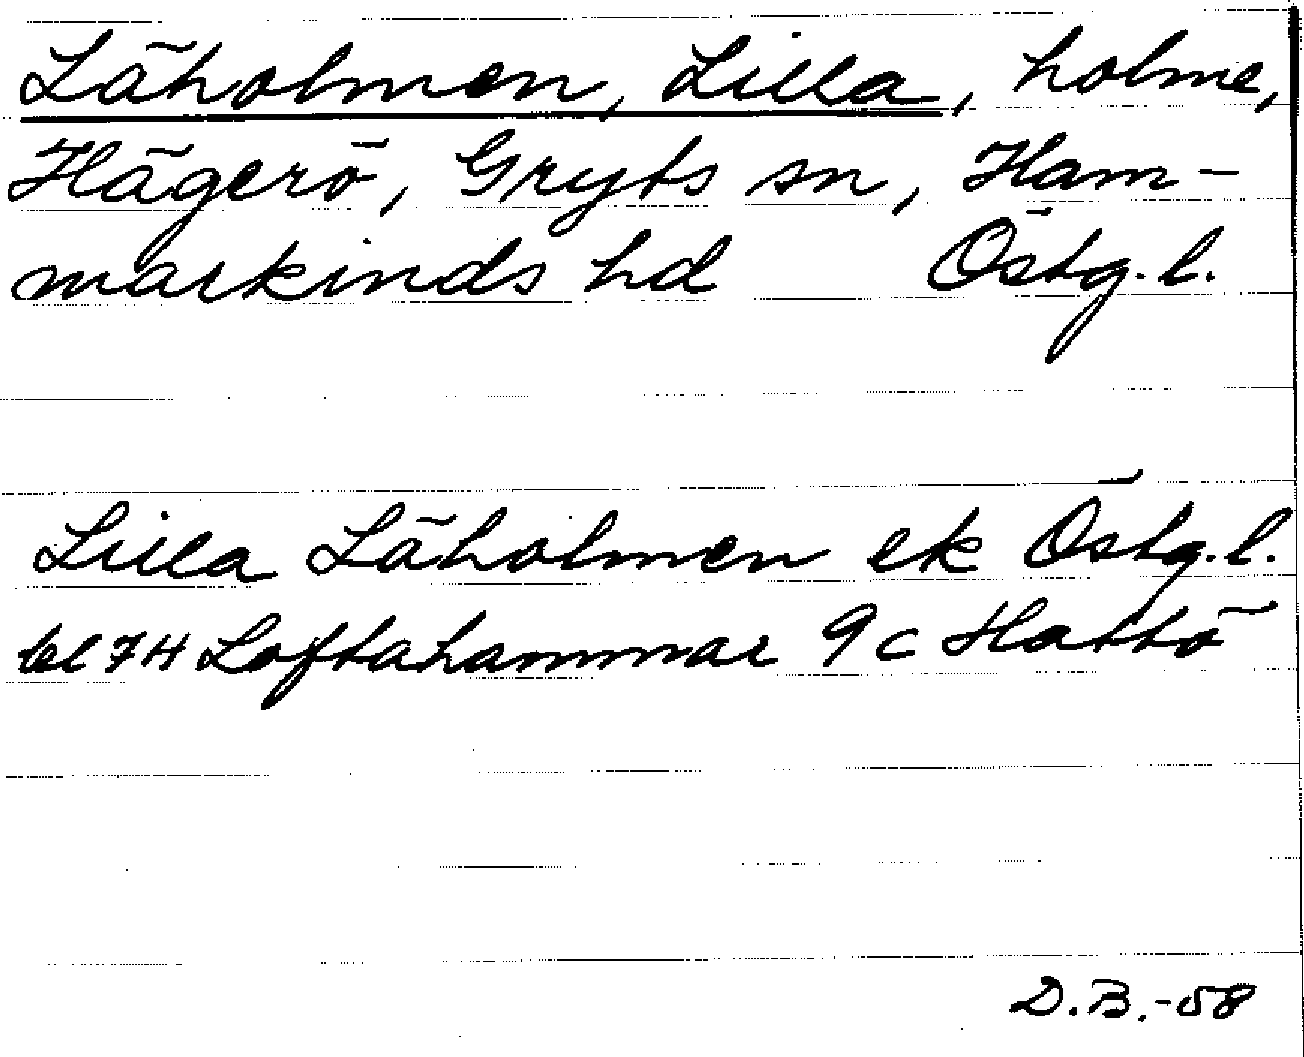 Läholmen, Lilla, holme,
Hägerö, Gryts sn, Ham-
markinds hd Östg.l.
Lilla Läholmen ek Östg.l.
bl 7H Loftahammar 9c Hattö
D.B.-58